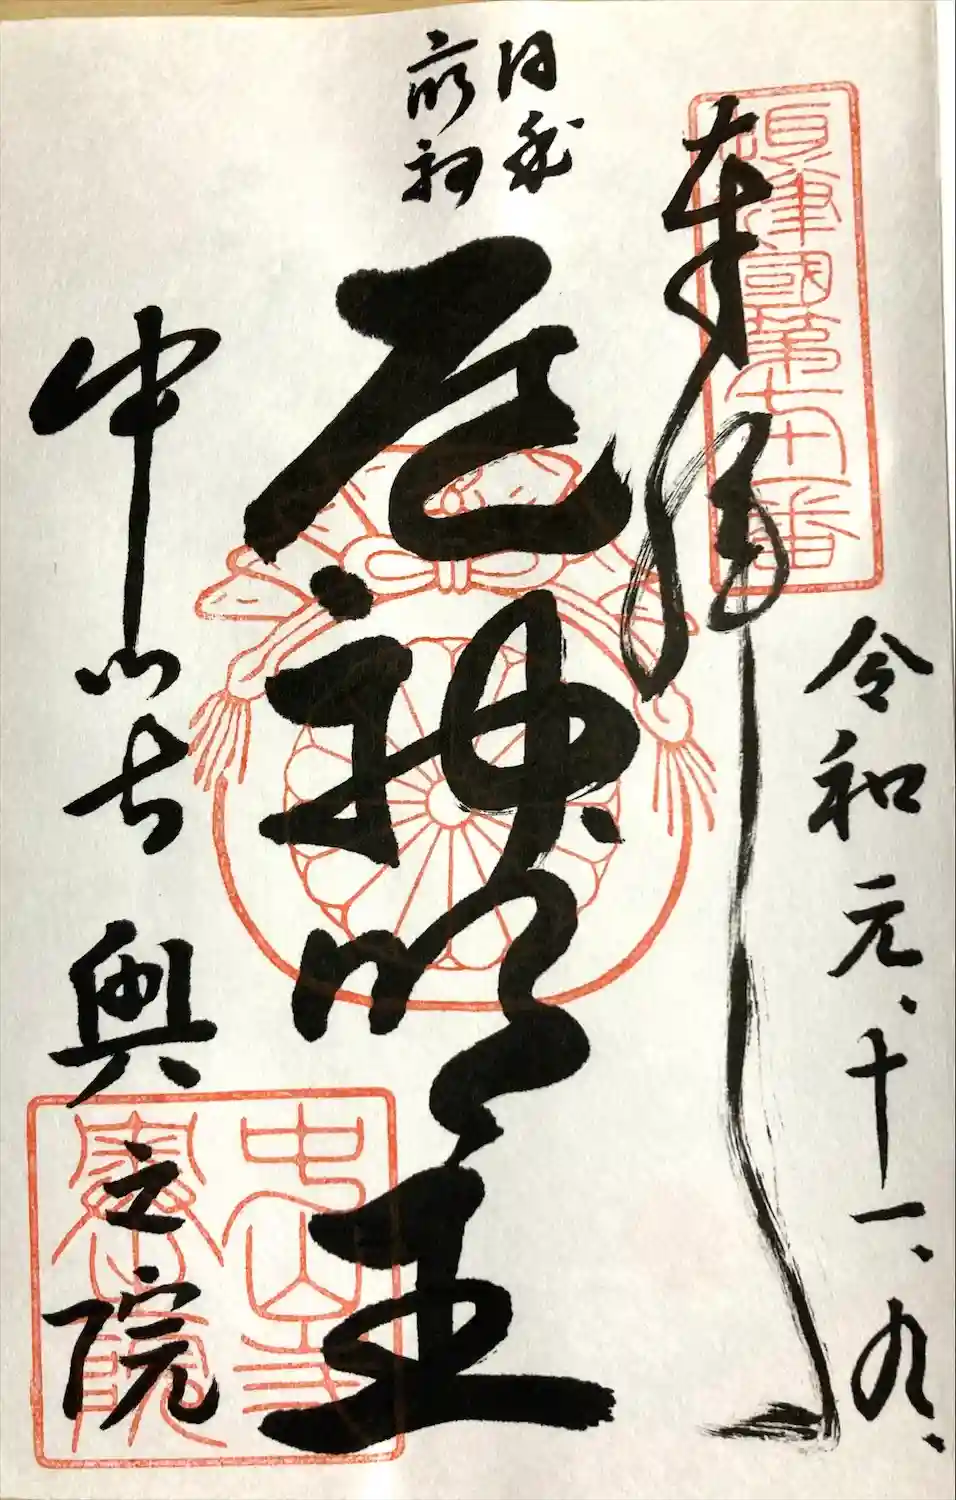 奉拝
攝津國第七十一番
令和元、十一、九、
日本
最初
厄神明王
中山寺 奥之院
中山寺
奥之院